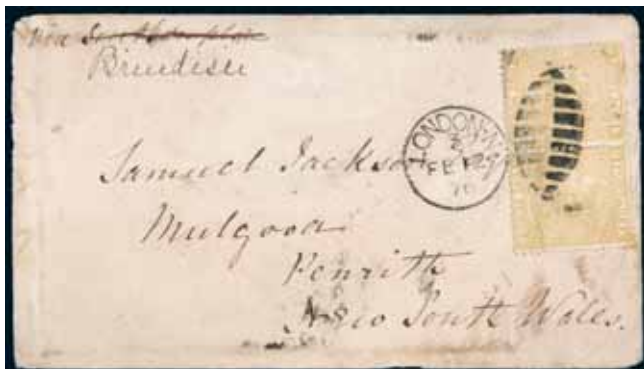 via Southampton
Brindisi
LONDON·N
FE 12
76
Samuel Jackson
Mulgoa
Penrith
New South Wales.